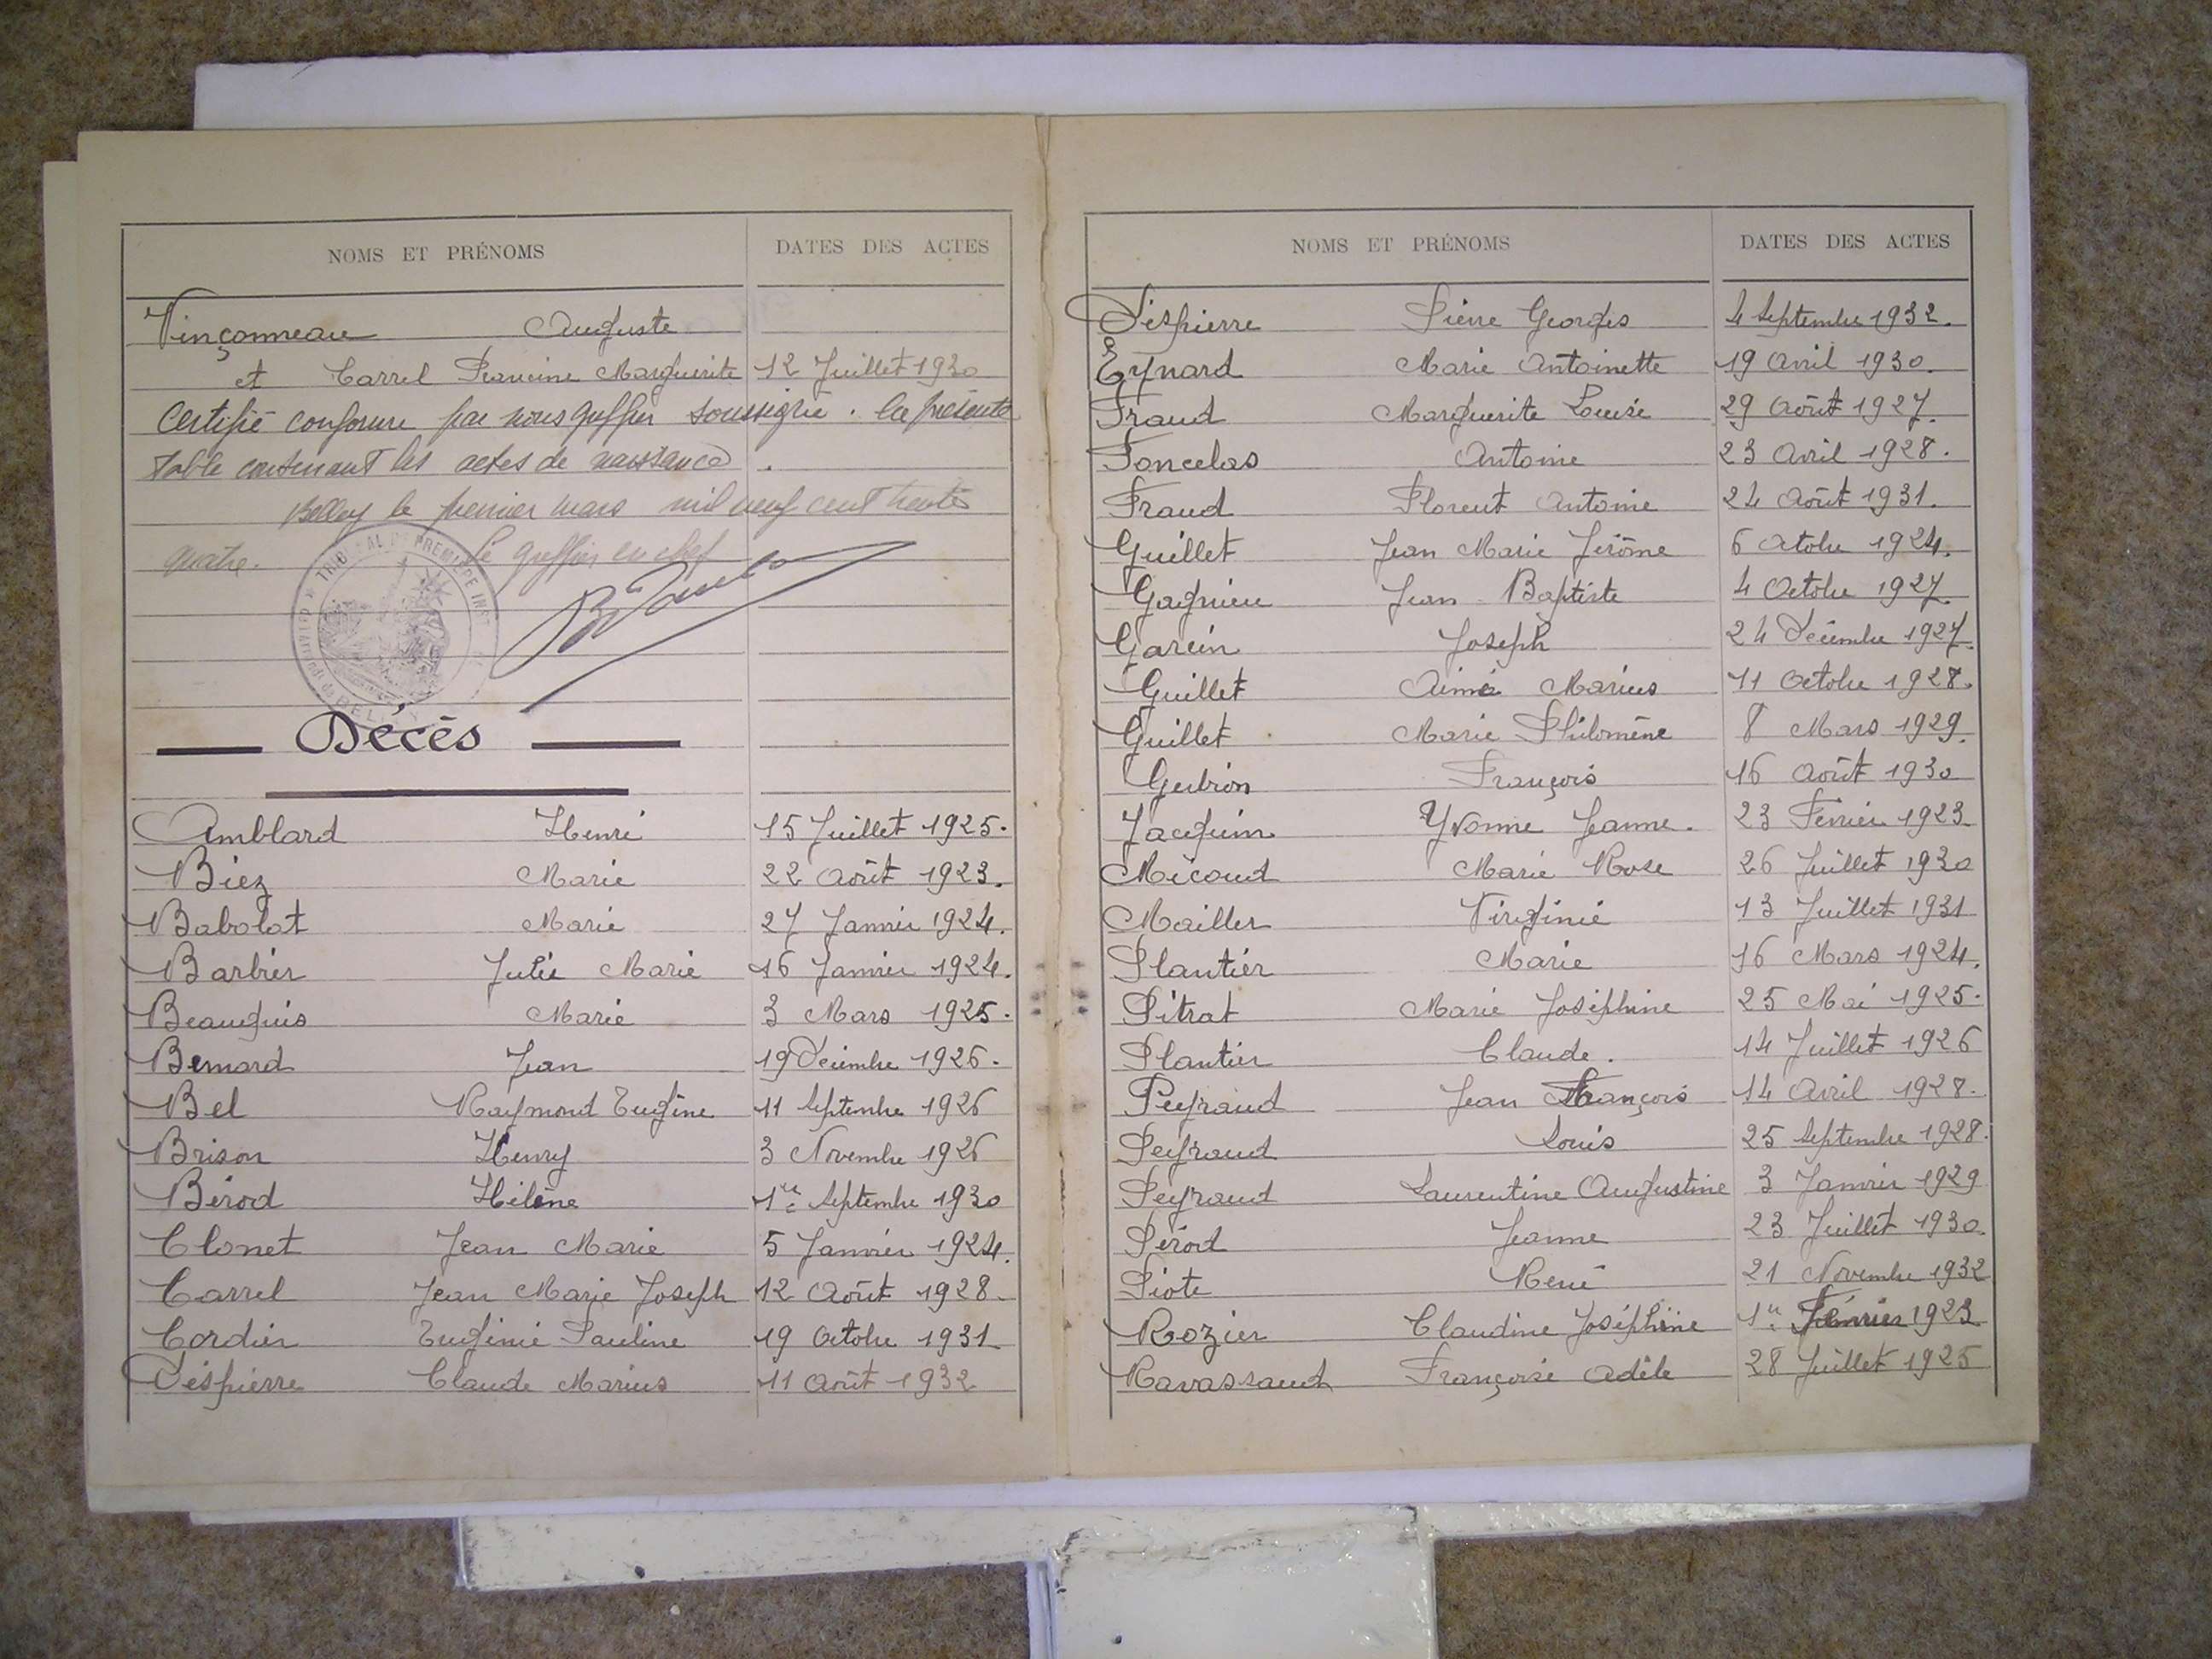 NOMS ET PRÉNOMS DATES DES ACTES
Vinçonneau Auguste
et Carrel Francine Marguerite 12 Juillet 1930
Certifié conforme par nous greffier soussigné. la présente
table contenant les actes de naissance.
Belley le premier mars mil neuf cent trente
quatre. Le greffier en chef
TRIBUNAL DE PREMIERE INST
Décès
Amblard Henri 15 Juillet 1925.
Biez Marie 22 Août 1923.
Babolat Marie 27 Janvier 1924.
Barbier Julie Marie 16 Janvier 1924.
Beauquis Marie 3 Mars 1925.
Bernard Jean 19 Décembre 1926.
Bel Raymond Eugène 11 Septembre 1926
Brison Henry 3 Novembre 1926
Bérod Hélène 1er Septembre 1930
Clonet Jean Marie 5 Janvier 1924.
Carrel Jean Marie Joseph 12 Août 1928.
Cordier Eugénie Pauline 19 Octobre 1931
Déspierre Claude Marius 11 Août 1932
NOMS ET PRÉNOMS DATES DES ACTES
Déspierre Pierre Georges 4 Septembre 1932.
Eynard Marie Antoinette 19 Avril 1930.
Fraud Marguerite Louise 29 Août 1927.
Foncelas Antoine 23 Avril 1928.
Fraud Florent Antoine 24 Août 1931.
Guillet Jean Marie Jérôme 6 Octobre 1924.
Gagnieu Jean-Baptiste 4 Octobre 1927.
Garcin Joseph 24 Décembre 1927.
Guillet Aimé Marius 11 Octobre 1928.
Guillet Marie Philomène 8 Mars 1929.
Gubion François 16 Août 1930
Jacquin Yvonne Jeanne. 23 Février 1923
Micoud Marie Rose 26 Juillet 1930
Mailler Virginie 13 Juillet 1931
Plantier Marie 16 Mars 1924.
Pitrat Marie Joséphine 25 Mai 1925.
Plantier Claude. 14 Juillet 1926
Peyraud Jean François 14 Avril 1928.
Peyraud Louis 25 Septembre 1928.
Peyraud Laurentine Augustine 3 Janvier 1929
Pérod Jeanne 23 Juillet 1930.
Piote René 21 Novembre 1932
Rozier Claudine Joséphine 1er Février 1923
Ravassaud Françoise Adèle 28 Juillet 1925